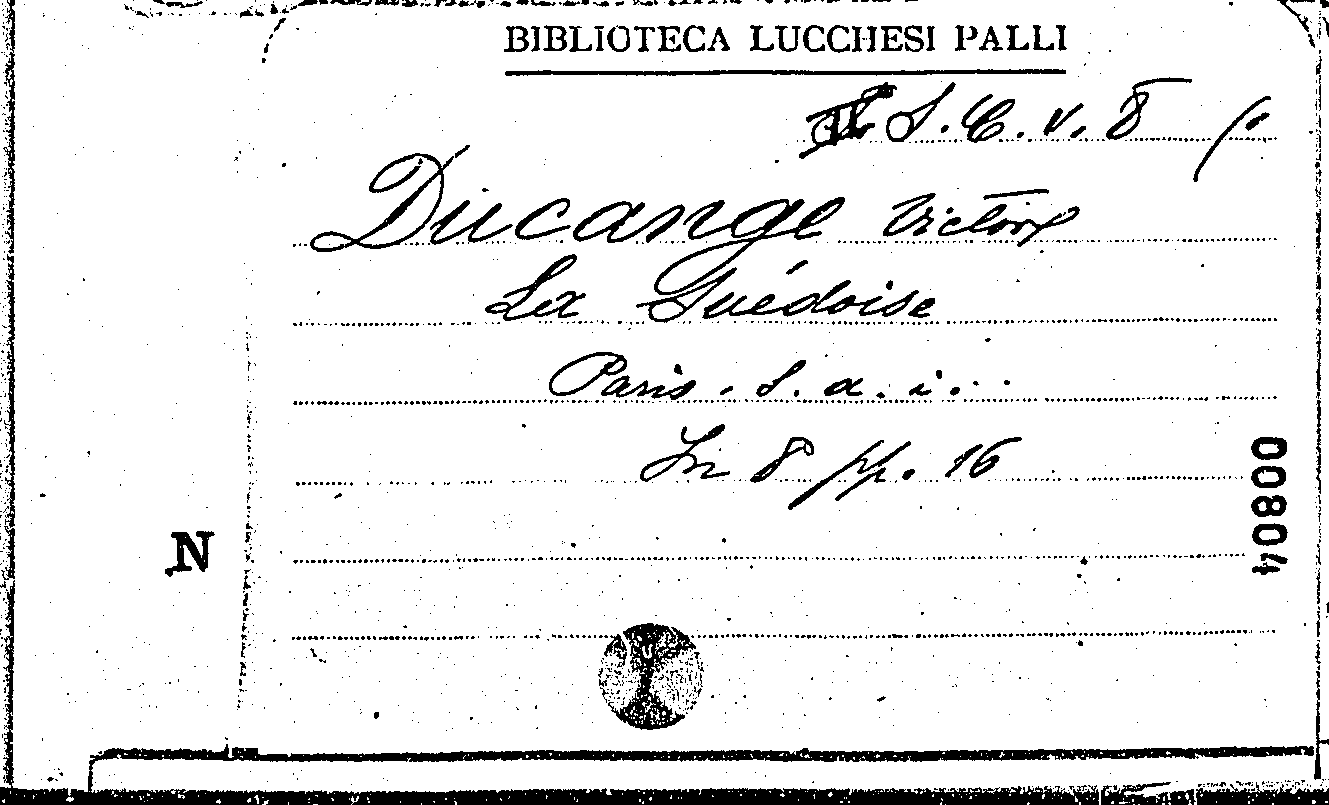 BIBLIOTECA LUCCHESI PALLI
S. C. v. 8 (.
Ducange Victor
La Suédoise
Paris. s. a. i. . .
In 8 pp. 16
00804
N